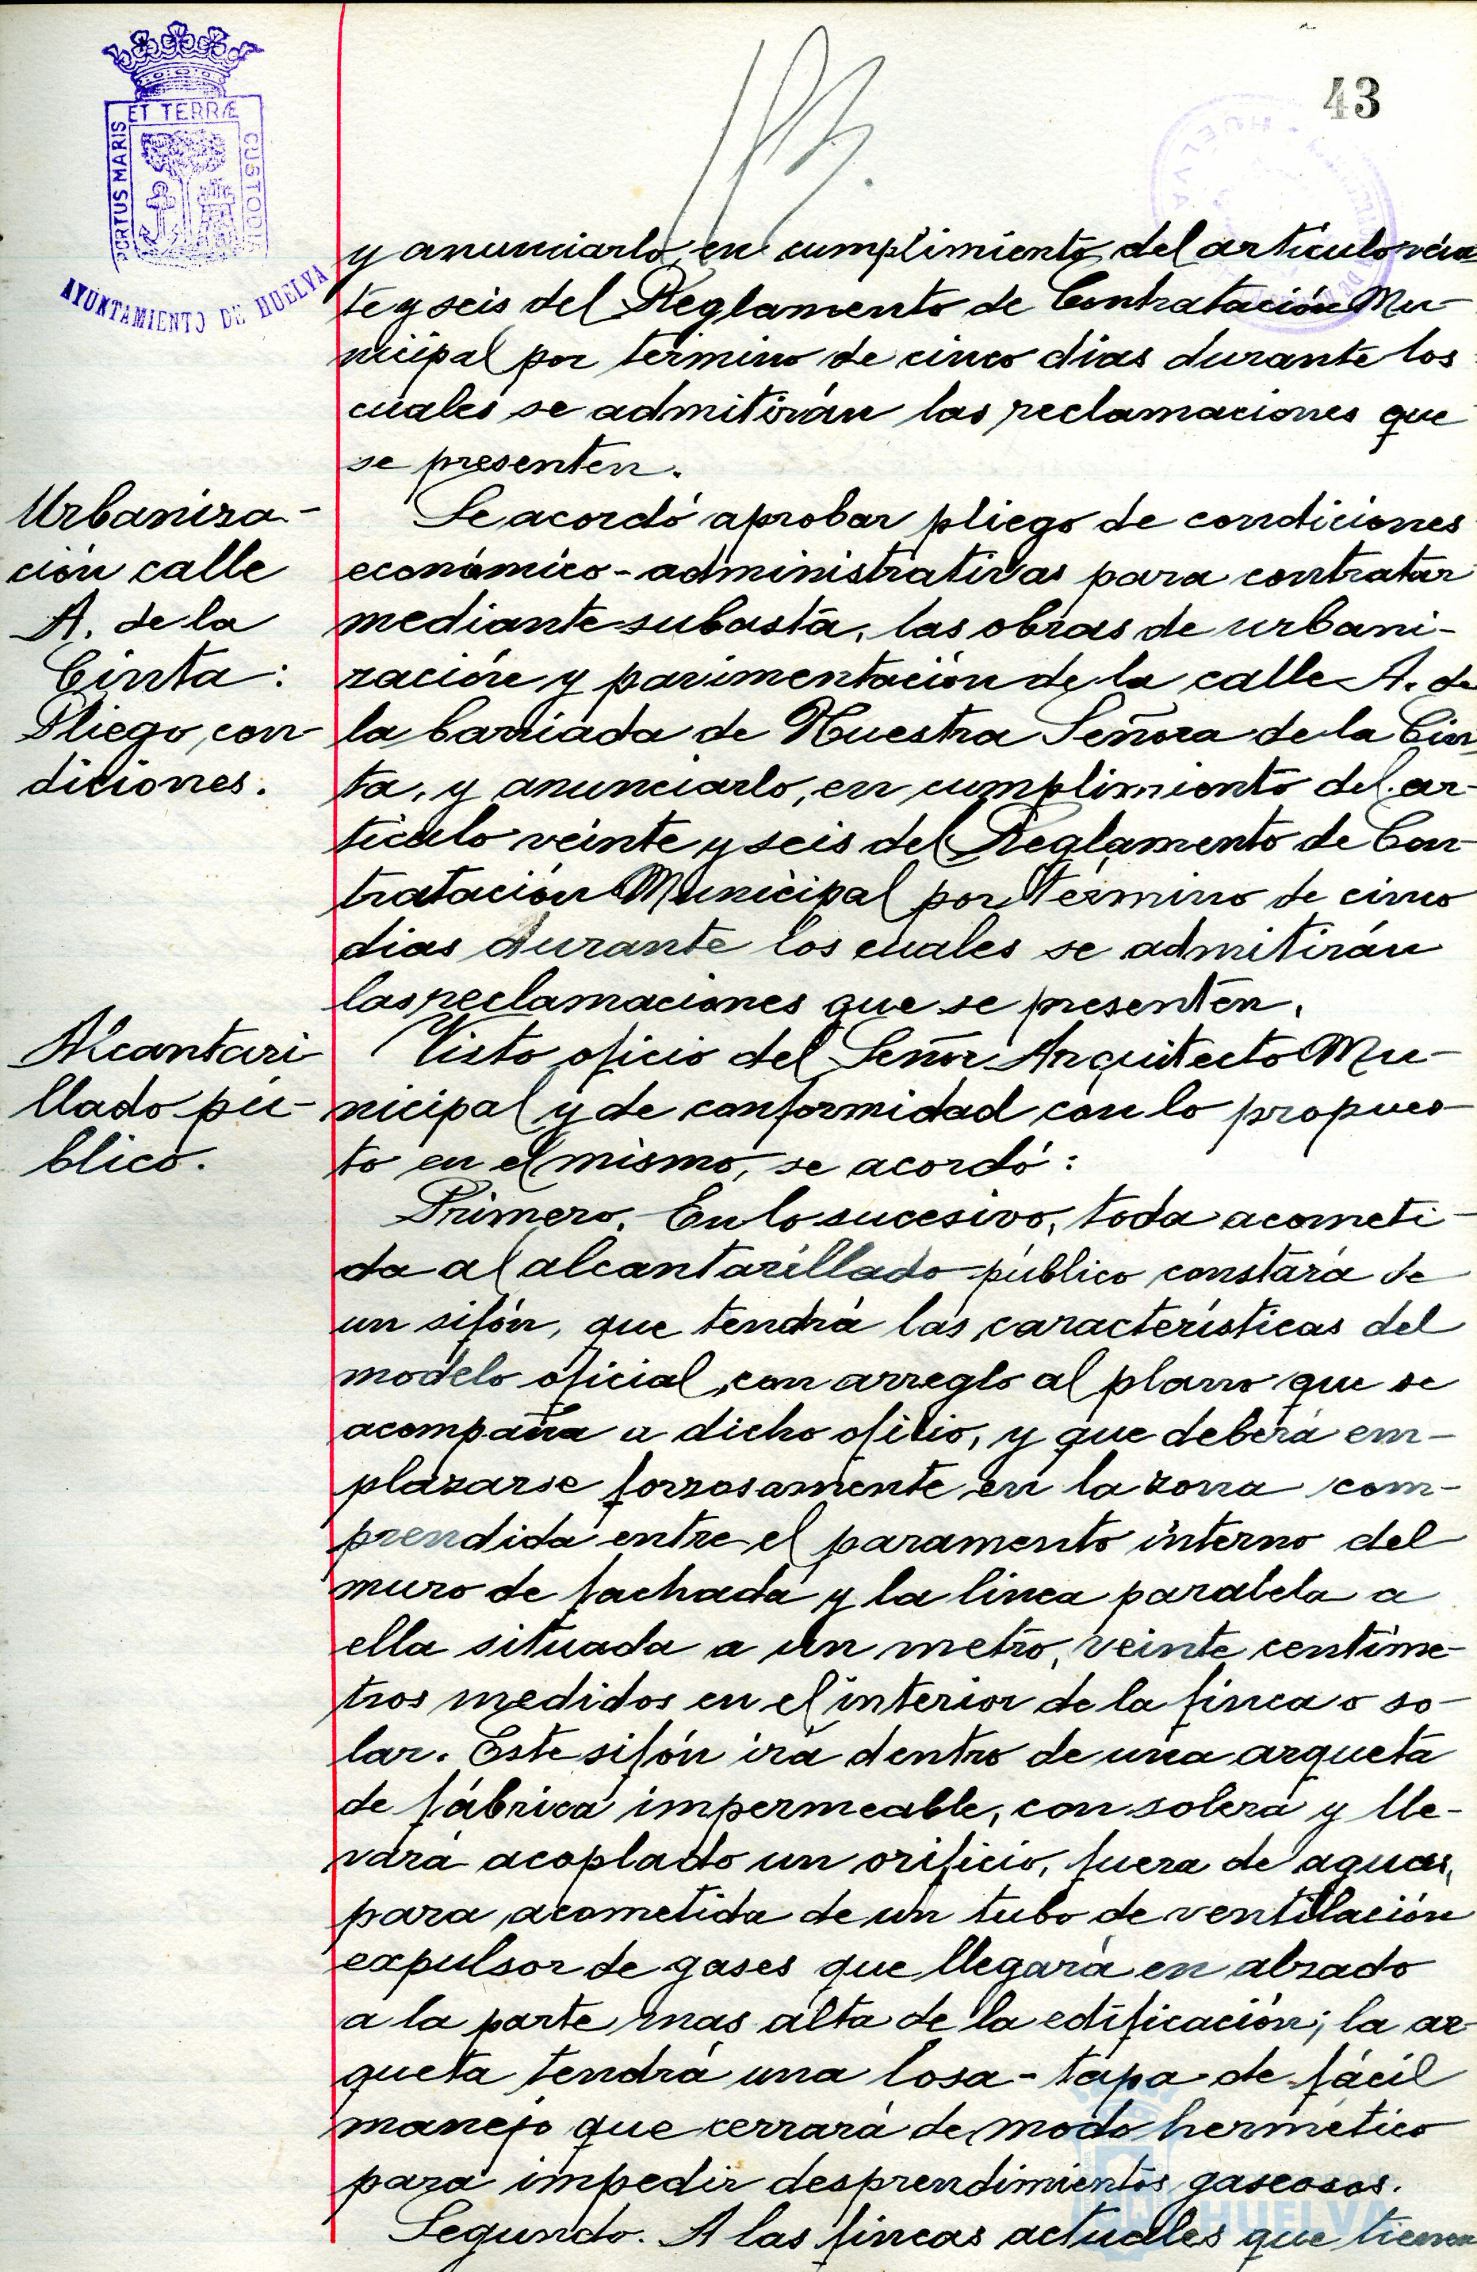 43
ET TERRÆ
PORTUS MARIS
CUSTODIA
AYUNTAMIENTO DE HUELVA
HUELVA
y anunciarlo, en cumplimiento del articulo vein
te y seis del Reglamento de Contratación Mu-
nicipal por término de cinco dias durante los
cuales se admitirán las reclamaciones que
se presenten.
Urbaniza-
ción calle
A. de la
Cinta:
Pliego, con-
diciones.
Se acordó aprobar pliego de condiciones
económico-administrativas para contratar
mediante subasta, las obras de urbani-
zación y pavimentación de la calle A. de
la barriada de Nuestra Señora de la Cin
ta, y anunciarlo, en cumplimiento del ar-
ticulo veinte y seis del Reglamento de Con-
tratación Municipal por término de cinco
dias durante los cuales se admitirán
las reclamaciones que se presenten.
Alcantari
llado pú-
blico.
Visto oficio del Señor Arquitecto Mu-
nicipal y de conformidad con lo propues-
to en el mismo, se acordó:
Primero. En lo sucesivo, toda acometi-
da al alcantarillado público constará de
un sifón, que tendrá las características del
modelo oficial, con arreglo al plano que se
acompaña a dicho oficio, y que deberá em-
plazarse forzosamente en la zona com-
prendida entre el paramento interno del
muro de fachada y la linea paralela a
ella situada a un metro, veinte centíme-
tros medidos en el interior de la finca o so-
lar. Este sifón irá dentro de una arqueta
de fábrica impermeable, con solera y lle-
vará acoplado un orificio, fuera de aguas,
para acometida de un tubo de ventilación
expulsor de gases que llegará en alzado
a la parte mas alta de la edificación; la ar-
queta tendrá una losa-tapa de fácil
manejo que cerrará de modo hermético
para impedir desprendimientos gaseosos.
Segundo. A las fincas actuales que tienen
HUELVA